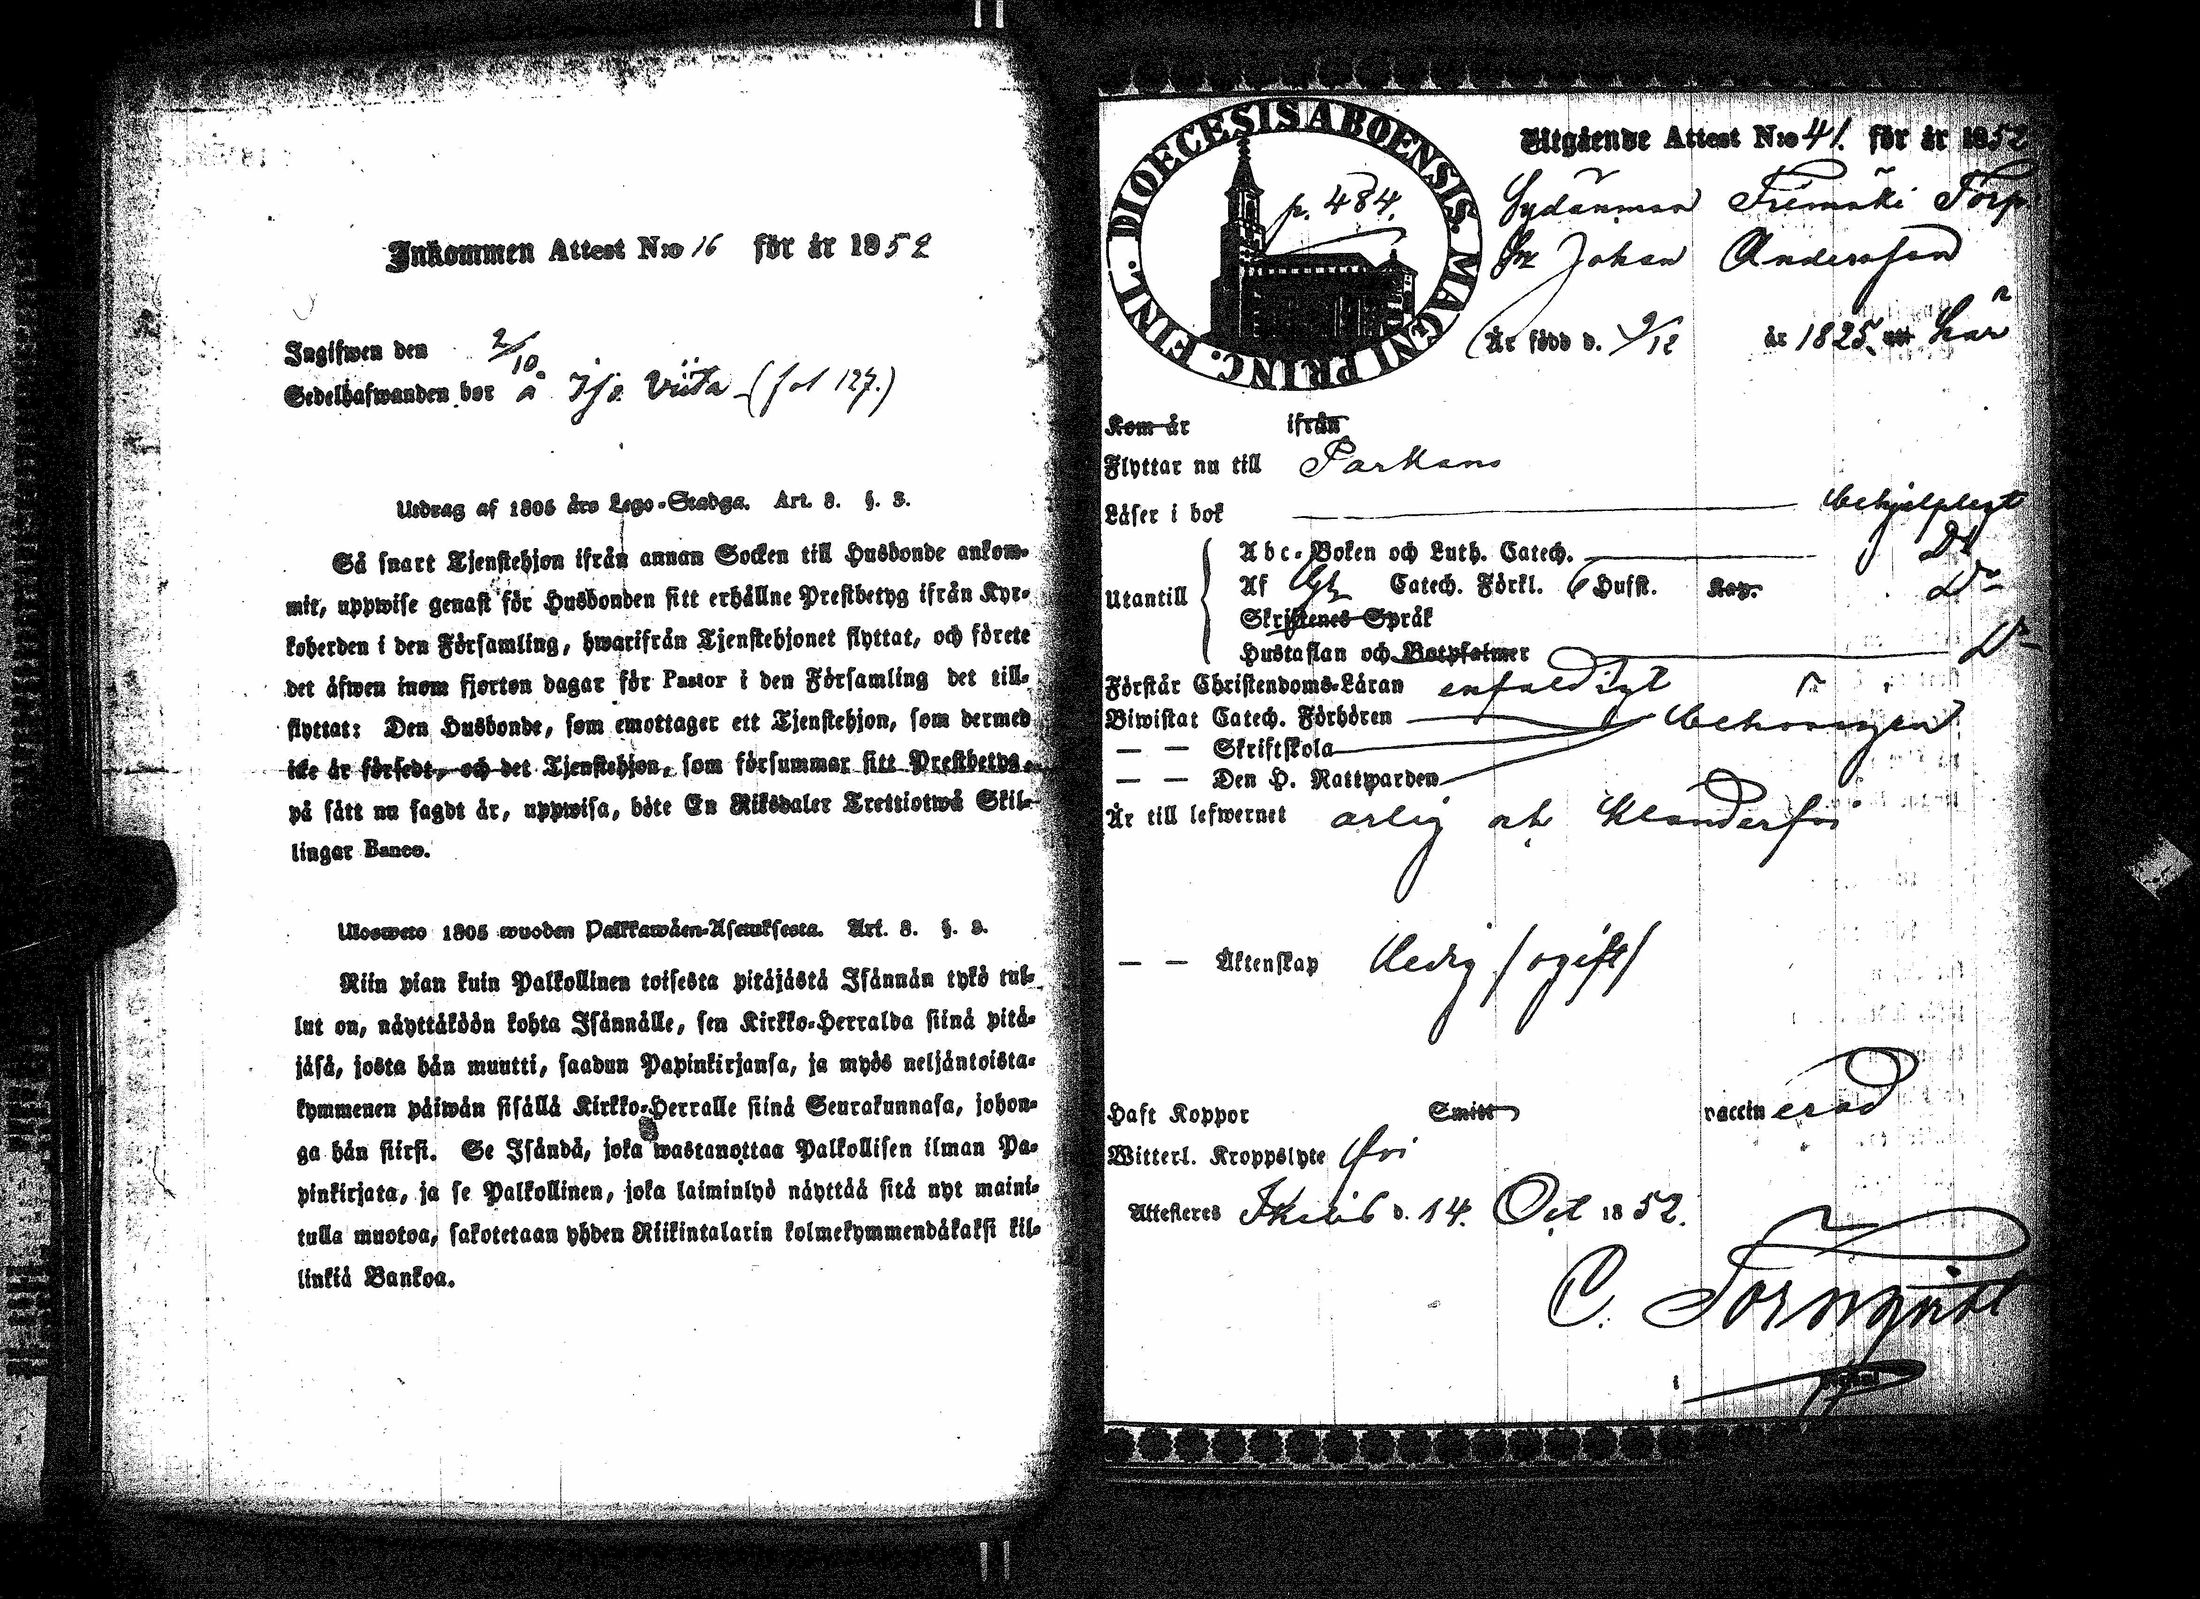 Inkommen Attest N:o 16 för år 1852
Ingifwen den 2/10.
Sedelhafwanden bor å Iso Viita (fol 127.)
Utdrag af 1805 års Lego-Stadga. Art. 8. §. 3.
Så snart Tjenstehjon ifrån annan Socken till Husbonde ankom-
mit, uppwise genast för Husbonden sitt erhållne Prestbetyg ifrån Kyr-
koherden i den Församling, hwarifrån Tjenstehjonet flyttat, och förete
det äfwen inom fjorton dagar för Pastor i den Församling det till-
flyttat: Den Husbonde, som emottager ett Tjenstehjon, som dermed
icke är försedt, och det Tjenstehjon, som försummar sitt Prestbetyg,
på sätt nu sagdt är, uppwisa, böte En Riksdaler Trettiotwå Skil-
lingar Banco.
Ulosweto 1805 wuoden Palkkawäen-Asetuksesta. Art. 8. §. 3.
Niin pian kuin Palkollinen toisesta pitäjästä Isännän tykö tul-
lut on, näyttäköön kohta Isännälle, sen Kirkko-Herralda siinä pitä-
jäsä, josta hän muutti, saadun Papinkirjansa, ja myös neljäntoista-
kymmenen päiwän sisällä Kirkko-Herralle siinä Seurakunnasa, johon-
ga hän siirsi. Se Isändä, joka wastanottaa Palkollisen ilman Pa-
pinkirjata, ja se Palkollinen, joka laiminlyö näyttää sitä nyt maini-
tulla muotoa, sakotetaan yhden Riikintalarin kolmekymmendäkaksi kil-
linkiä Bankoa.
DIOECESIS ABOENSIS. MAGNI PRINC. FINL.
p. 484.
Utgående Attest N:o 41. för år 1852
Sydänmaa Torp
Johan Andersson
Är född d. 9/12 år 1825. här
Kom år ifrån
Flyttar nu till Parkano
Läser i bok behjelpligt
Utantill
Abc-Boken och Luth. Catech. Do
Af Catech. Förkl. Hufst. Kap. Do
Skriftenes Språk
Hustaflan och Botpsalmer Do
Förstår Christendoms-Läran enfaldigt
Biwistat Catech. Förhören behörigen
— — Skriftskola
— — Den H. Nattwarden
Är till lefwernet ärlig och klanderfri
— — Äktenskap ledig /ogift/
Haft Koppor Smitt vaccinerad
Witterl. Kroppslyte fri
Attesteras Ikalis d. 14. Oct 1852.
C. Törnqvist
i